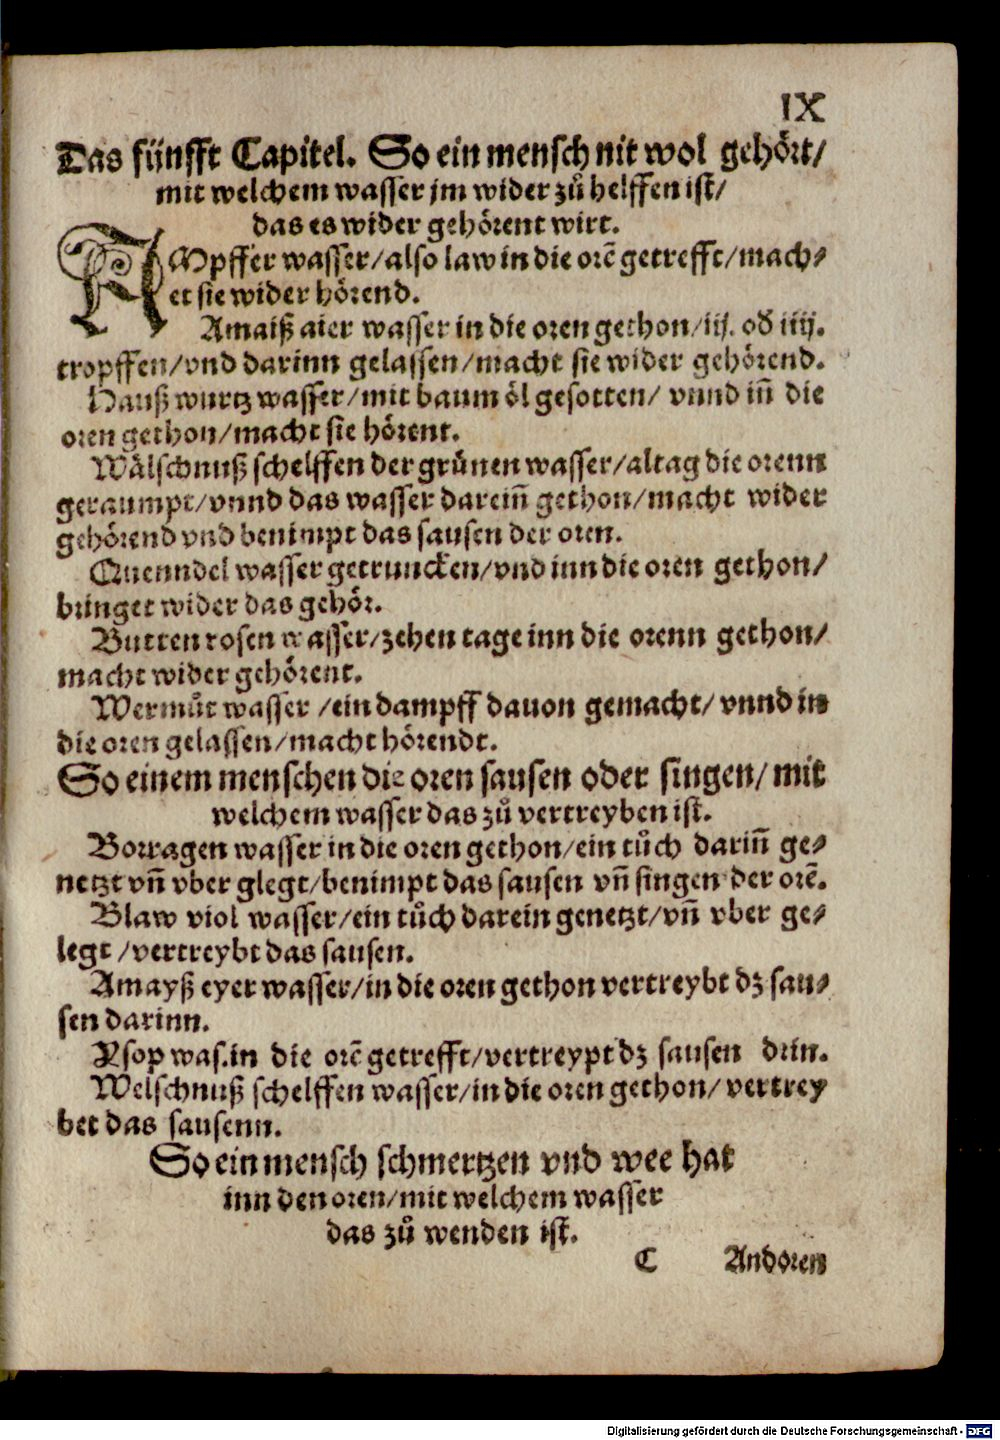 IX
Das fünfft Capitel. So ein mensch nit wol gehört/
mit welchem wasser jm wider zů helffen ist/
das es wider gehörent wirt.
RMpffer wasser/also law in die orē getrefft/mach⸗
et sie wider hörend.
Amaiß aier wasser in die oren gethon/iij. od iiij.
tropffen/vnd darinn gelassen/macht sie wider gehörend.
Hauß wurtz wasser/mit baum öl gesotten/ vnnd iñ die
oren gethon/macht sie hörent.
Wälschnuß schelffen der grünen wasser/altag die orenn
geraumpt/vnnd das wasser dareiñ gethon/macht wider
gehörend vnd benimpt das sausen der oren.
Quenndel wasser getruncken/vnd inn die oren gethon/
bringet wider das gehör.
Butten rosen wasser/zehen tage inn die orenn gethon/
macht wider gehörent.
Wermůt wasser /ein dampff dauon gemacht/ vnnd in
die oren gelassen/macht hörendt.
So einem menschen die oren sausen oder singen/ mit
welchem wasser das zů vertreyben ist.
Borragen wasser in die oren gethon/ein tůch dariñ ge⸗
netzt vñ vber glegt/benimpt das sausen vñ singen der orē.
Blaw viol wasser/ein tůch darein genetzt/vñ vber ge⸗
legt /vertreybt das sausen.
Amayß eyer wasser/in die oren gethon vertreybt dz sau⸗
sen darinn.
Ysop was.in die orē getrefft/vertreypt dz sausen drin.
Welschnuß schelffen wasser/in die oren gethon/ vertrey
bet das sausenn.
So ein mensch schmertzen vnd wee hat
inn den oren/mit welchem wasser
das zů wenden ist.
C Andoren
Digitalisierung gefördert durch die Deutsche Forschungsgemeinschaft - DFG